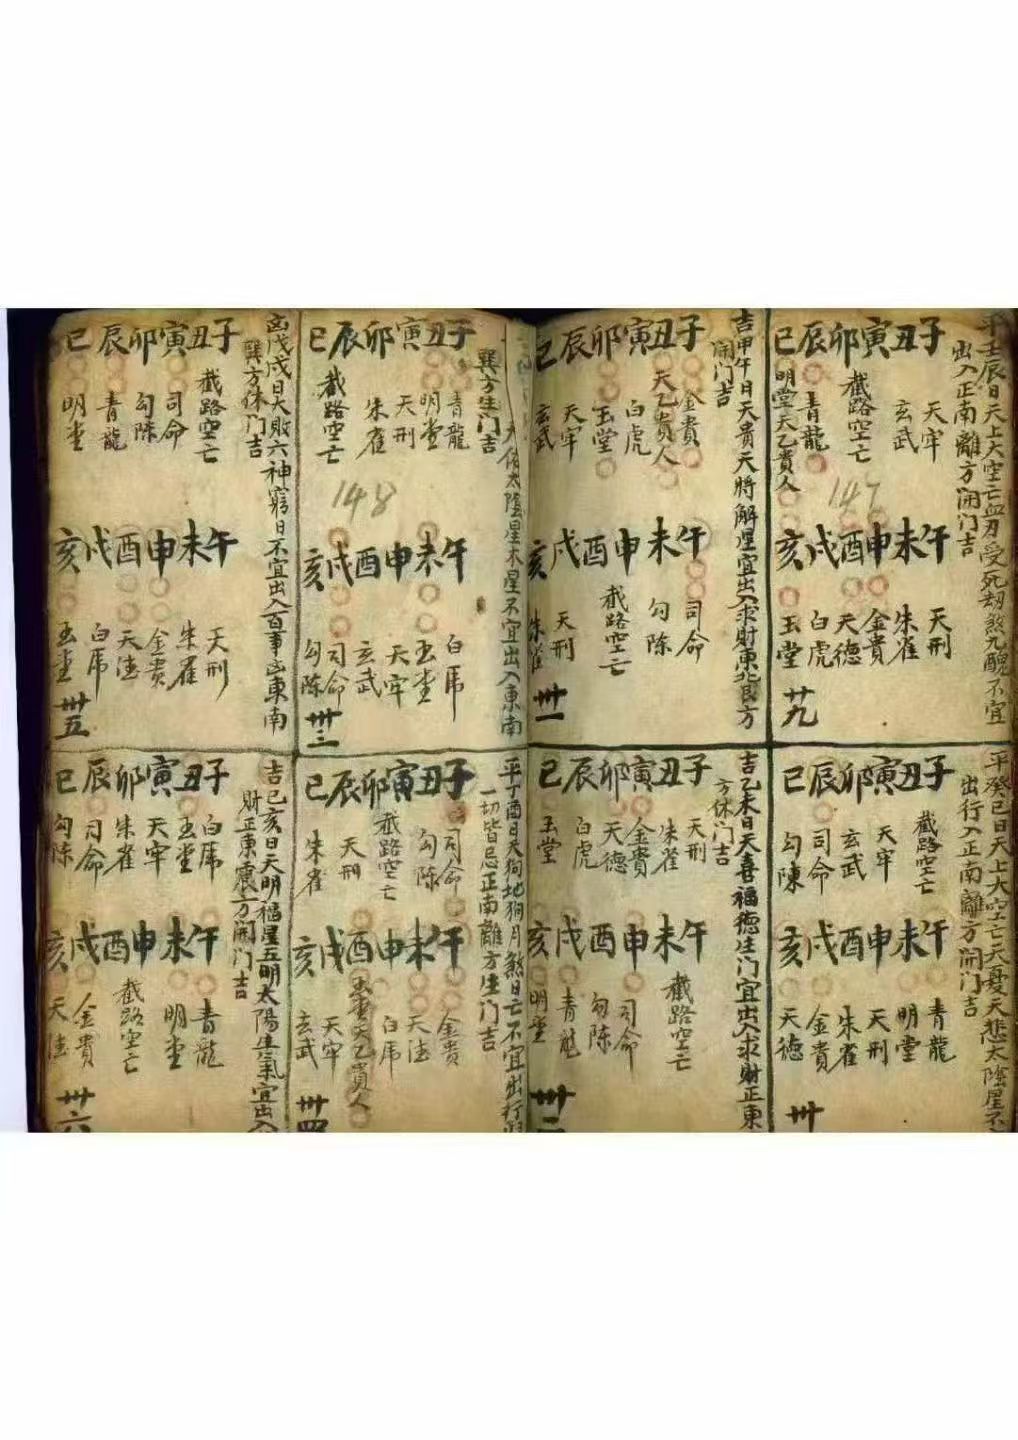 平壬辰日天上大空亡血刃受死劫煞九醜不宜
出入正南離方開門吉
子丑寅卯辰巳
天牢
玄武
截路空亡
青龍
明堂天乙貴人
147
午未申酉戌亥
天刑
朱雀
金貴
天德
白虎
玉堂
廿九
平癸巳日天上大空亡天憂天悲太陰星不
出行入正南離方開門吉
子丑寅卯辰巳
截路空亡
天牢
玄武
司命
勾陳
午未申酉戌亥
青龍
明堂
天刑
朱雀
金貴
天德
卅
吉甲午日天貴天將解星宜出入求財東北艮方
開門吉
子丑寅卯辰巳
金貴
天乙貴人
白虎
玉堂
天牢
玄武
午未申酉戌亥
司命
勾陳
截路空亡
天刑
朱雀
卅一
吉乙未日天喜福德生门宜出入求財正東
方休门吉
子丑寅卯辰巳
天刑
朱雀
金貴
天德
白虎
玉堂
午未申酉戌亥
截路空亡
司命
勾陳
青龍
明堂
卅二
太陰星木星不宜出入東南
巽方生门吉
子丑寅卯辰巳
青龍
明堂
天刑
朱雀
截路空亡
148
午未申酉戌亥
白虎
玉堂
天牢
玄武
司命
勾陳
卅三
平丁酉日天狗地狗月煞日亡不宜出行
一切皆忌正南離方生门吉
子丑寅卯辰巳
司命
勾陳
截路空亡
天刑
朱雀
午未申酉戌亥
金貴
天德
白虎
玉堂天乙貴人
天牢
玄武
卅四
凶戊戌日大敗六神窮日不宜出入百事凶東南
巽方休门吉
子丑寅卯辰巳
截路空亡
司命
勾陳
青龍
明堂
午未申酉戌亥
天刑
朱雀
金貴
天德
白虎
玉堂
卅五
吉己亥日天明福星五明太陽生氣宜出入
財正東震方開门吉
子丑寅卯辰巳
白虎
玉堂
天牢
朱雀
司命
勾陳
午未申酉戌亥
青龍
明堂
截路空亡
金貴
天德
卅六